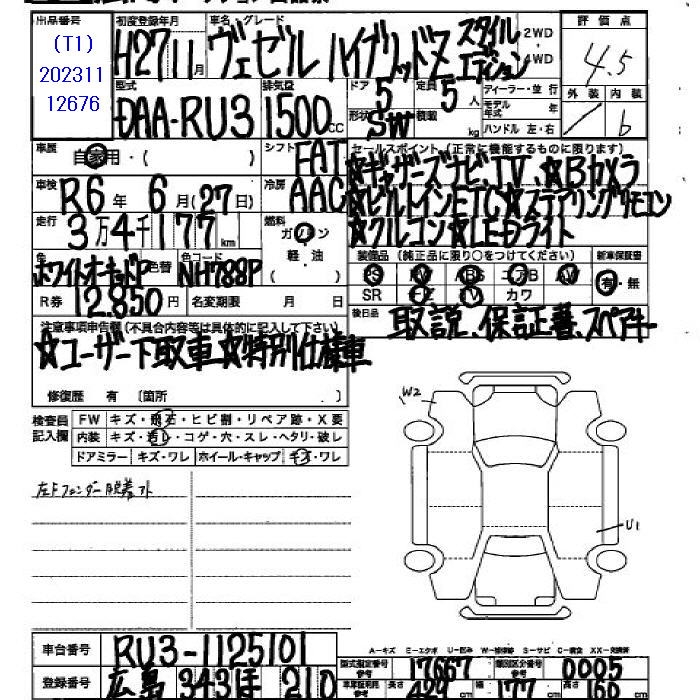 出品番号 初度登録年月 車名 グレード 評価点
(T1)
202311
12676
H27 11月 ヴェゼル ハイブリッドZ スタイルエディション 2WD 4WD 4.5
型式 排気量 ドア 定員 ディーラー・並行 外装 内装
DAA-RU3 1500cc 5 5人 モデル年式 年
形状 SW 積載 kg ハンドル 左・右 b
車歴 自家用・( ) シフト FAT セールスポイント(正常に機能するものに限ります)
車検 R6年 6月(27日) 冷房 AAC ☆ギャザーズナビ、TV、☆Bカメラ
☆ビルトインETC☆ステアリングリモコン
走行 3万4千177km 燃料 ガソリン ☆クルコン☆LEDライト
軽・油
色 色替 色コード 装備品(純正品に限り○をつけてください) 新車保証書
ホワイトオーキッドP NH788P ( ) PS PW ABS エアB AW 有・無
R券 12,850円 名変期限 月 日 SR ナビ TV カワ
後日品 取説、保証書、スペアキー
注意事項申告欄(不具合内容等は具体的に記入して下さい)
☆ユーザー下取車☆特別仕様車
修復歴 有 〔箇所 〕
検査員 FW キズ・飛石・ヒビ割・リペア跡・X要
記入欄 内装 キズ・汚レ・コゲ・穴・スレ・ヘタリ・破レ
ドアミラー キズ・ワレ ホイール・キャップ キズ・ワレ
W2
左Fフェンダー脱着アト
U1
A-キズ E-エクボ U-凹み W-補修跡 S-サビ C-腐食 XX-交換済
車台番号 RU3-1125101
型式指定番号 参考 17667 類別区分番号 参考 0005
登録番号 広島 343 ほ 210
車庫証明用 参考 長さ 429cm 幅 177cm 高さ 160cm